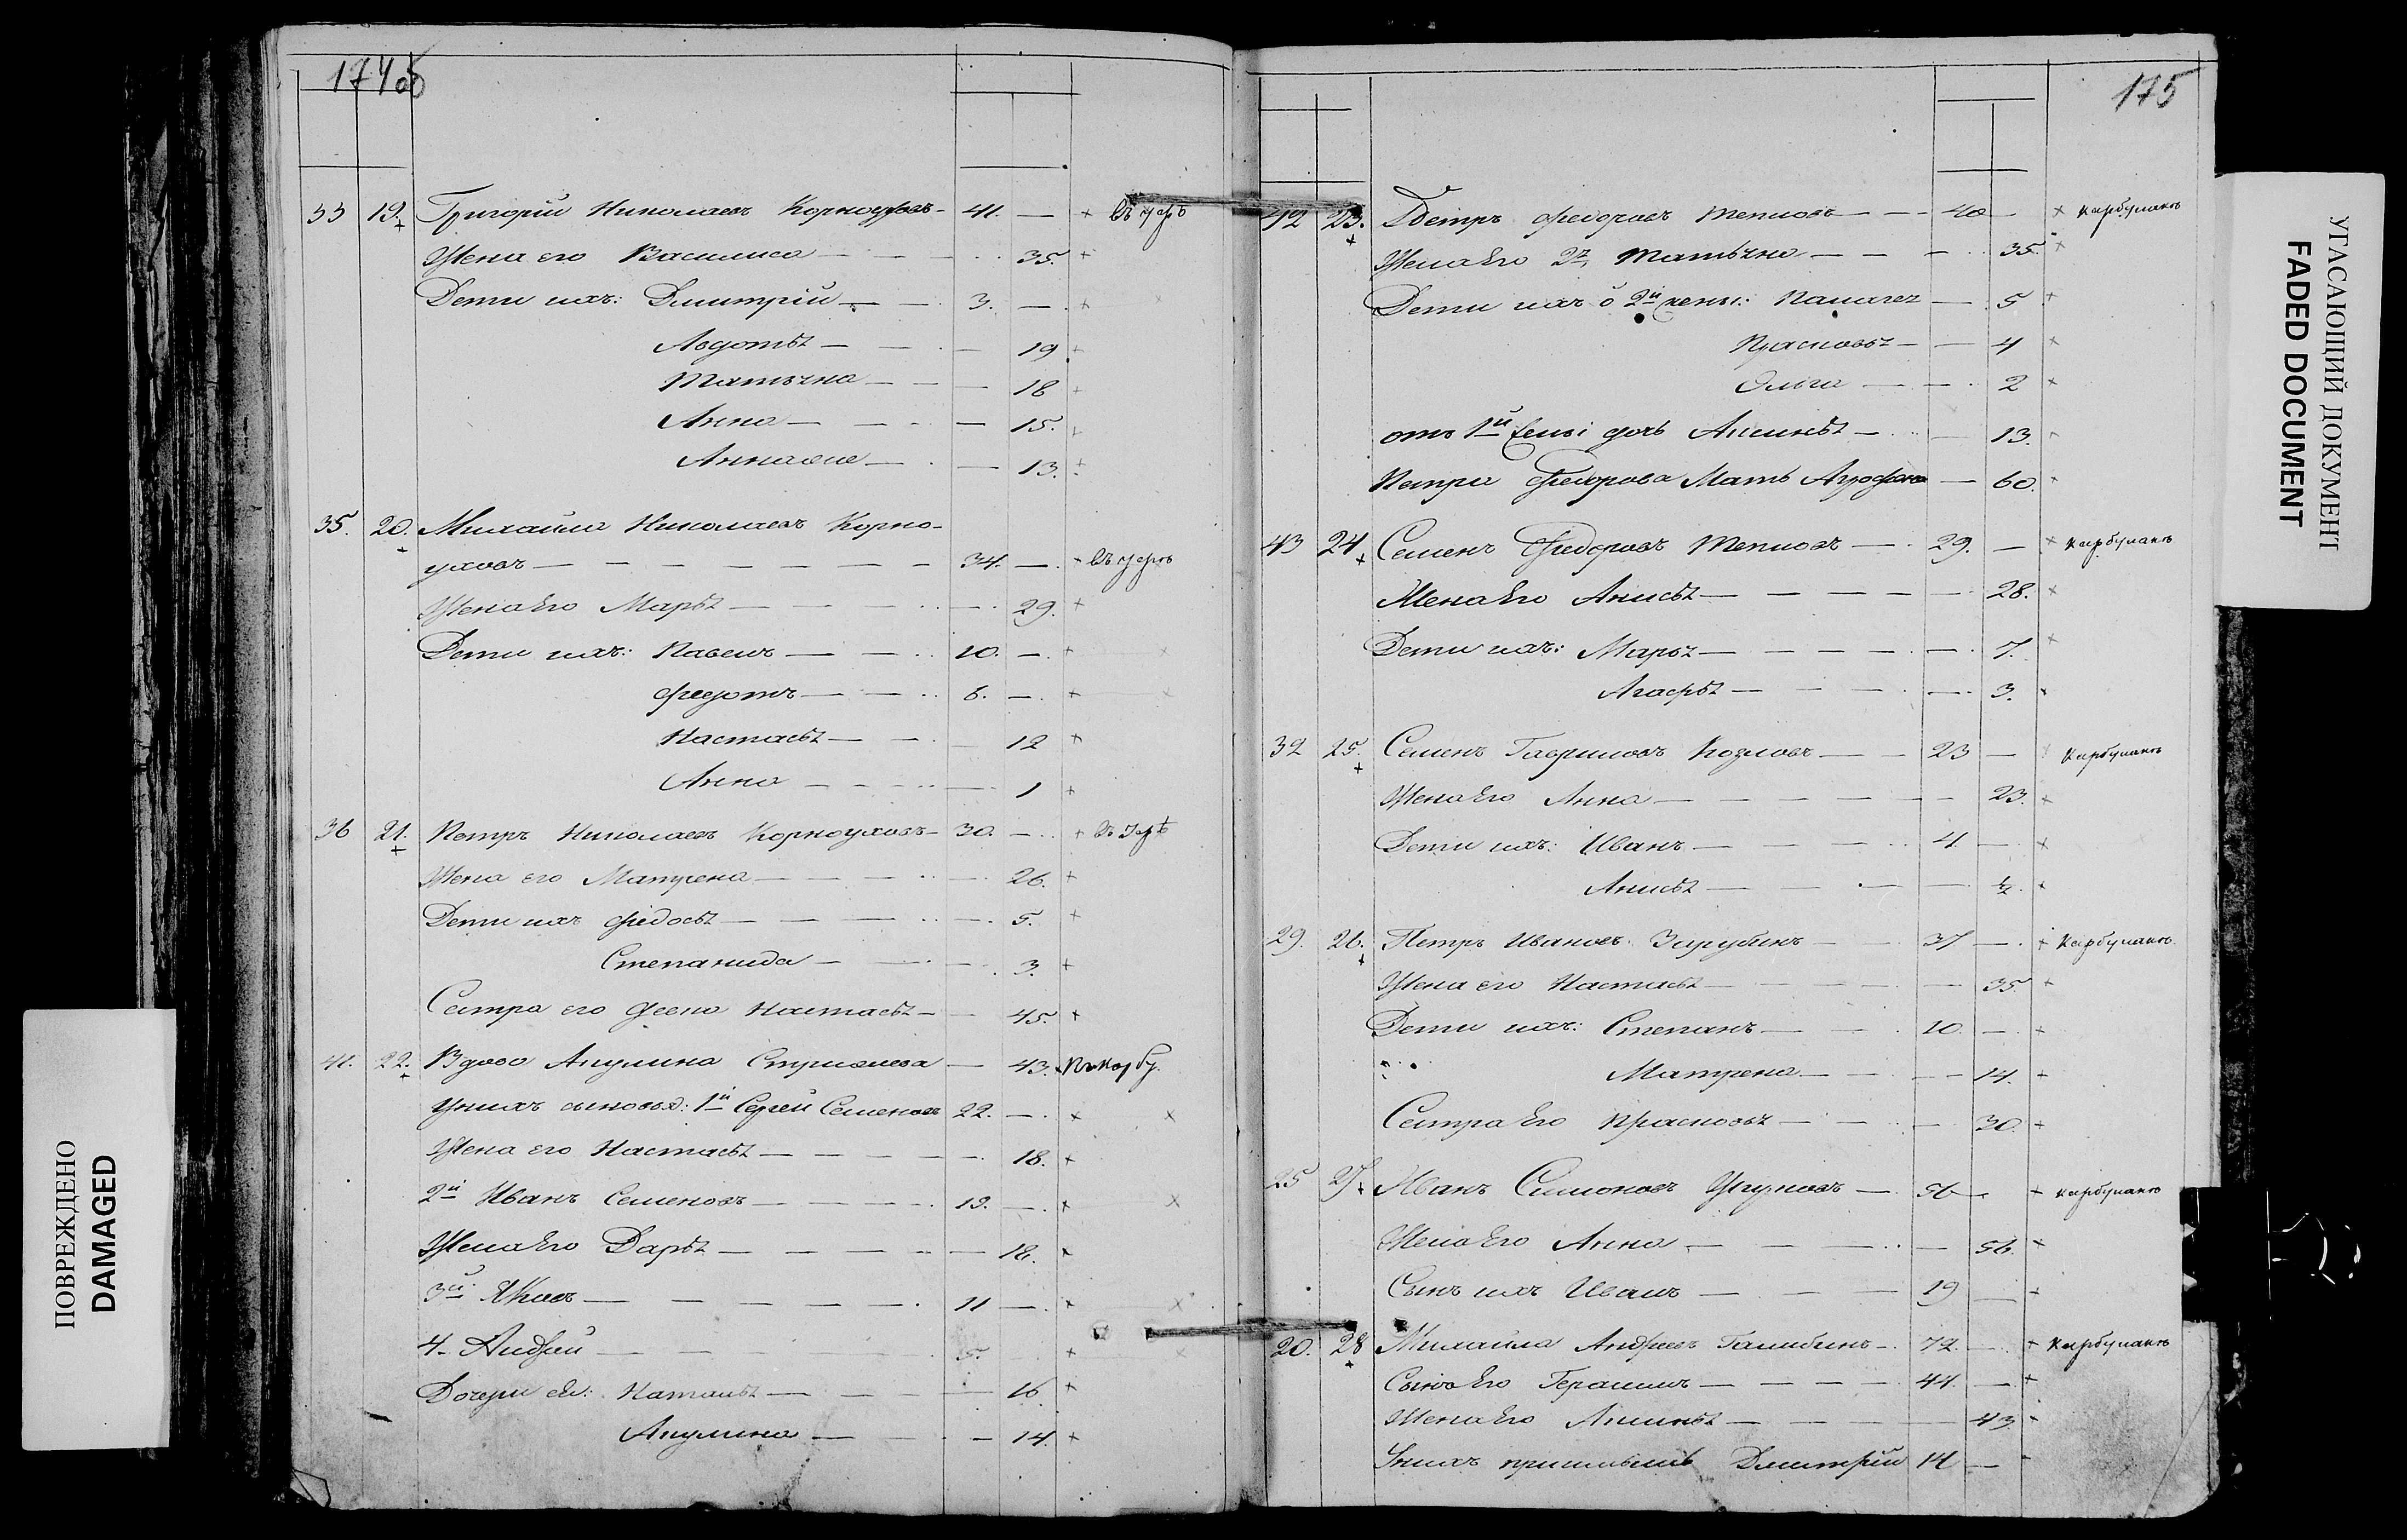 174об
33 19. Григорій Николаевъ Корноуховъ — 41. —
Жена его Василиса — 35.
Дети ихъ: Дмитрій — 3. —
Авдотья — 19
Татьяна — 18
Анна — 15.
— 13.
35. 20. Михайла Николаевъ Корно-
уховъ — 34. —
Жена Его Марья — 29.
Дети ихъ: Павелъ — 10. —
Федотъ — 6. —
Настасья — 12
Анна — 1
36 21. Петръ Николаевъ Корноуховъ — 30. —
Жена его Матрена — 26.
Дети ихъ Федосья — 5.
Степанида — 3.
Сестра его Настасья — 45.
41. 22. Вдова Акулина — 43.
У нихъ сыновья: 1й Сергей Семеновъ 22. —
Жена его Настасья — 18.
2й Иванъ Семеновъ — 19. —
Жена Его Дарья — 18.
3й Яковъ — 11 —
4. Андрей — 5.
Дочери ея: Наталья — 16
Акулина — 14.
175
42 23. Петръ Федоровъ Тепловъ — 40 — Карбулакъ
Жена Его 2я Татьяна — 35.
Дети ихъ о 2й жены: Палагея — 5
Прасковья — 4
Ольга — 2
отъ 1й жены дочь Аксинья — 13.
Петра Федорова Мать — 60.
43 24 Семенъ Федоровъ Тепловъ — 29. — Карбулакъ
Жена Его Анисья — 28.
Дети ихъ: Марья — 7.
Агафья — 3.
32 25. Семенъ Гавриловъ Козловъ — 23 — Карбулакъ
Жена Его Анна — 23.
Дети ихъ: Иванъ — 4 —
Анисья — ½.
29. 26. Петръ Ивановъ Зарубинъ — 37 — Карбулакъ.
Жена его Настасья — 35
Дети ихъ: Степанъ — 10. —
Матрена — 14.
Сестра Его Прасковья — 30.
25 27 Иванъ Симоновъ — 56 — Карбулакъ
Жена Его Анна — 56.
Сынъ ихъ Иванъ — 19 —
20. 28 Михайла Андреевъ Галибинъ — 72. — Карбулакъ
Сынъ Его Герасимъ — 44. —
Жена Его Аксинья — 43
У нихъ Дмитрій 14 —
ПОВРЕЖДЕНО
DAMAGED
УГАСАЮЩИЙ ДОКУМЕНТ
FADED DOCUMENT